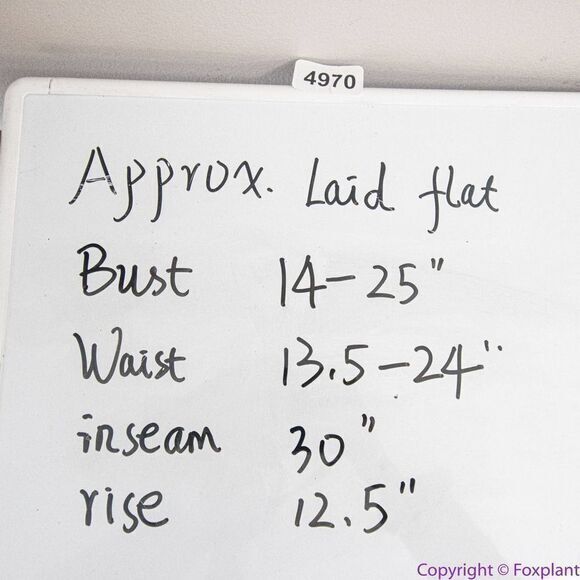 4970
Approx. Laid flat
Bust 14-25"
Waist 13.5-24"
inseam 30"
rise 12.5"
Copyright © Foxplant